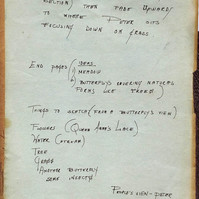 THEN FADE UPWARD/
TO WHERE PETER SITS
FOCUSING DOWN ON GRASS
END PAGES (
MEADOW
BUTTERFLYS COVERING NATURAL
FORMS LIKE TREES)
THINGS TO SKETCH (FROM A BUTTERFLY'S VIEW)
FLOWERS (QUEEN ANNE'S LACE)
WATER
TREE
GRASS
ANOTHER BUTTERFLY
DEAD INSECTS
PEOPLE'S VIEW - PETER